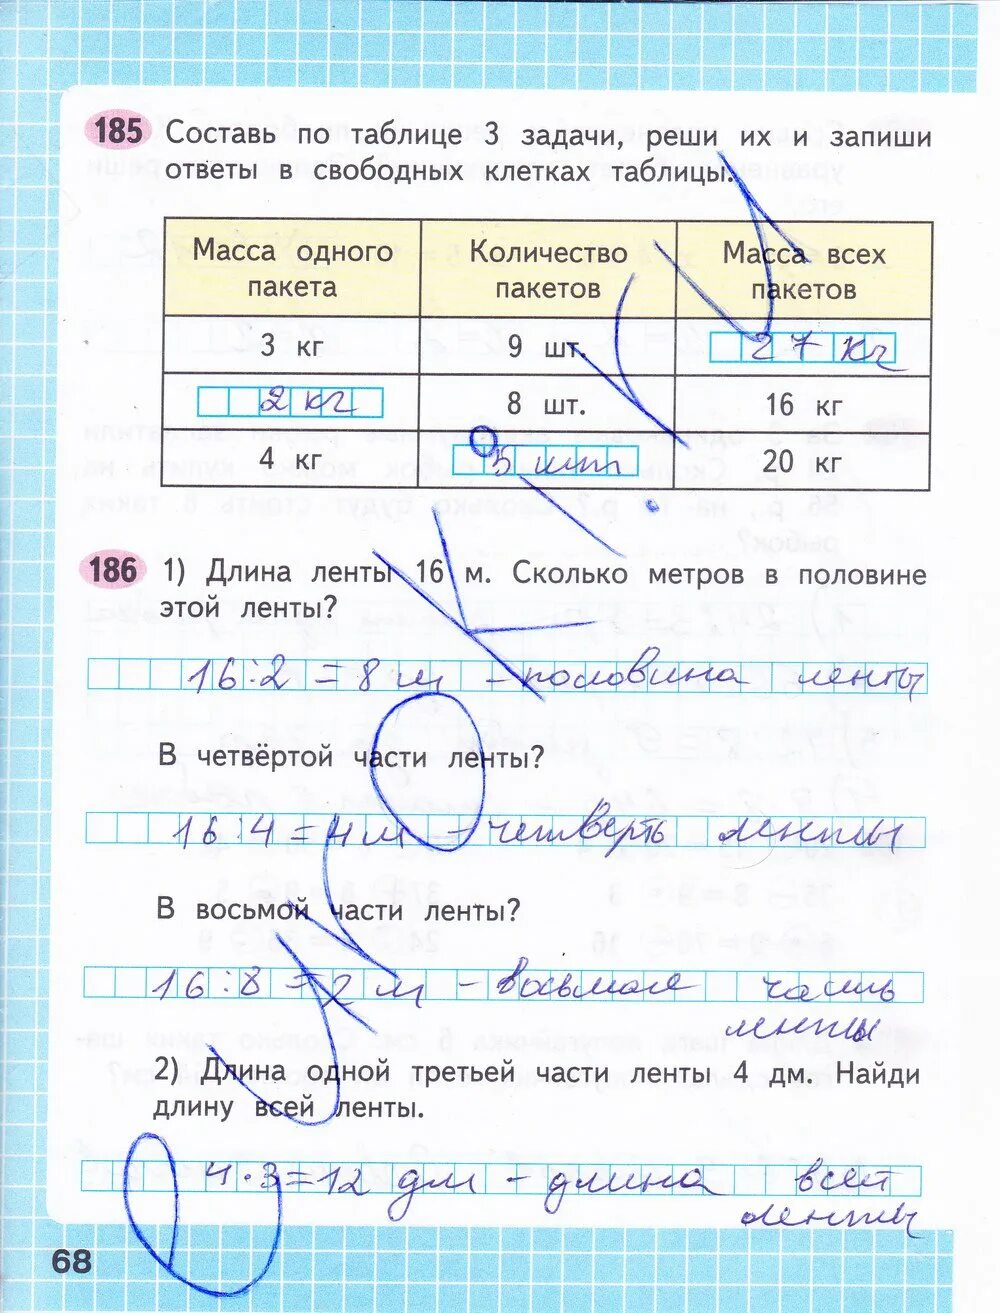 185 Составь по таблице 3 задачи, реши их и запиши
ответы в свободных клетках таблицы.
Масса одного пакета Количество пакетов Масса всех пакетов
3 кг 9 шт. 27 кг
2 кг 8 шт. 16 кг
4 кг 5 шт 20 кг
186 1) Длина ленты 16 м. Сколько метров в половине
этой ленты?
16:2 = 8 м - половина ленты
В четвёртой части ленты?
16:4 = 4 м - четверть ленты
В восьмой части ленты?
16:8 = 2 м - восьмая часть
ленты
2) Длина одной третьей части ленты 4 дм. Найди
длину всей ленты.
4·3=12 дм - длина всей
ленты
68